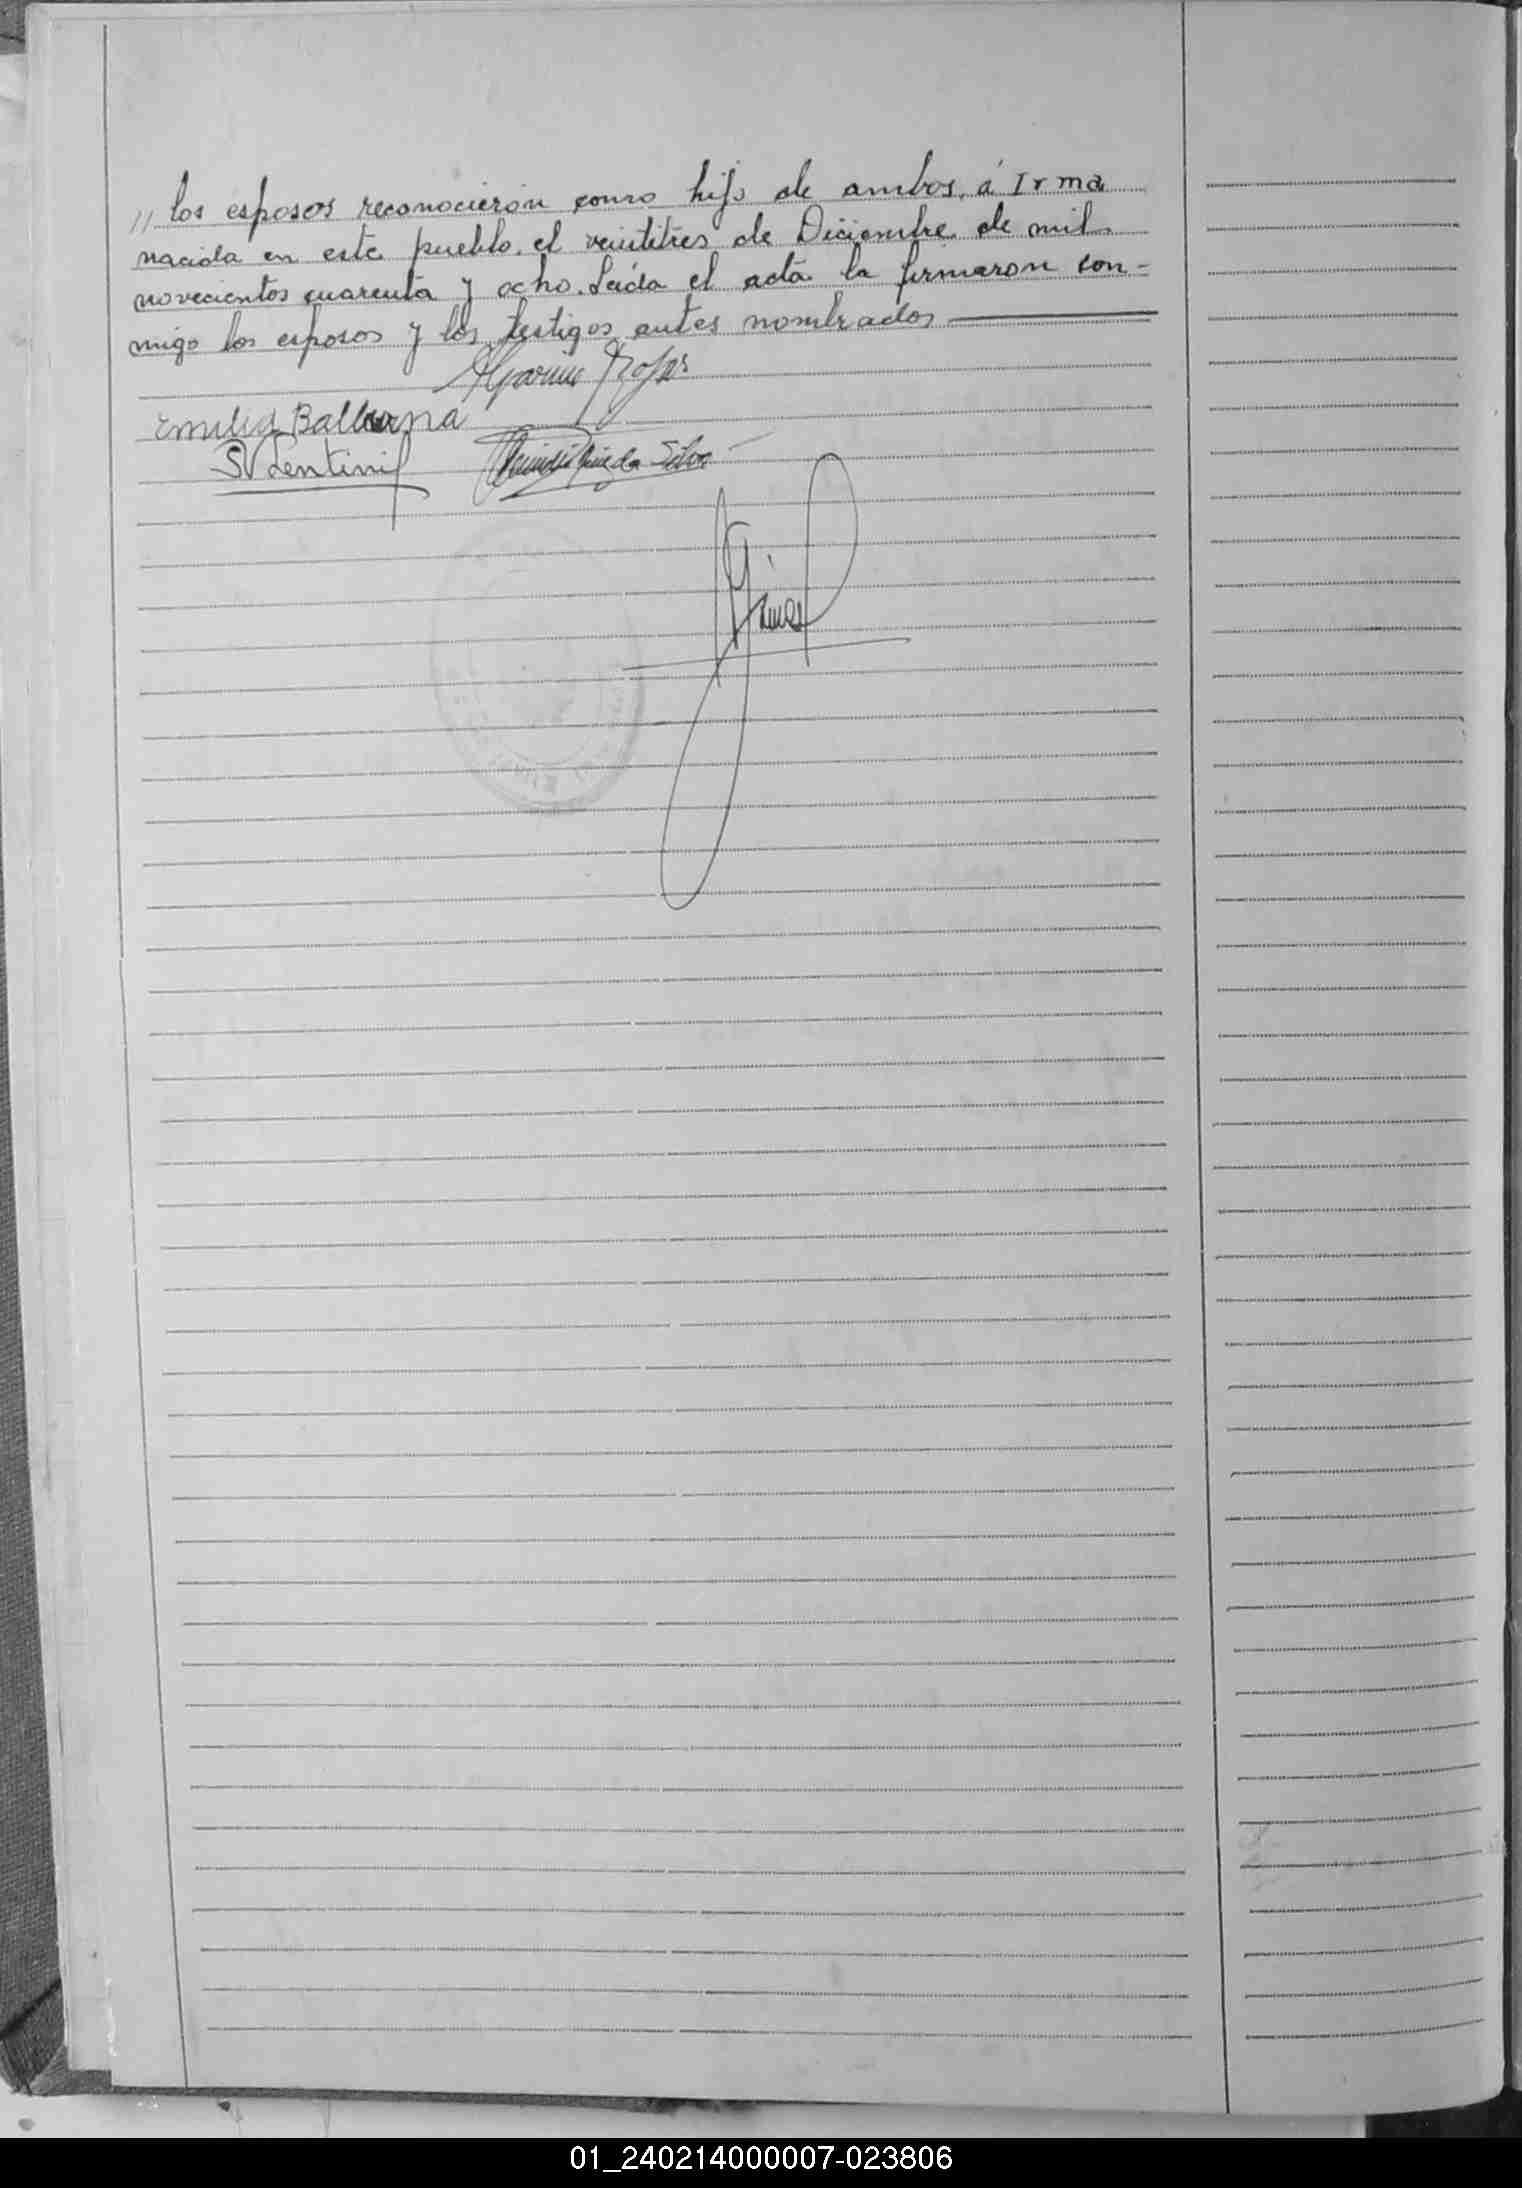 // los esposos reconocieron como hijo de ambos, á Irma
nacida en este pueblo, el veintitres de Diciembre de mil
novecientos cuarenta y ocho. Leída el acta la firmaron con-
migo los esposos y los testigos antes nombrados
Rojas
Emilia
da Silva
01_240214000007-023806